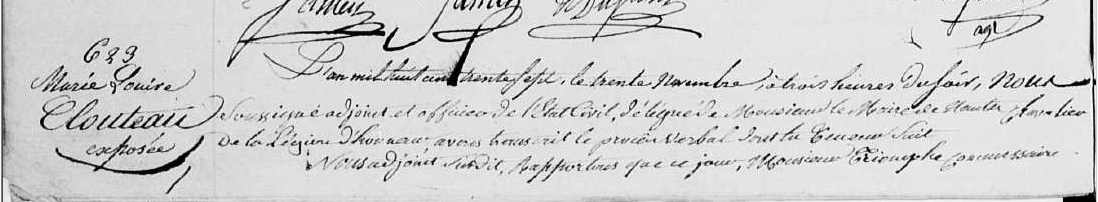 623
Marie Louise
Clouteau
exposée
L'an mil huit cent trente sept, le trente Novembre, à trois heures du soir, Nous
Soussigné adjoint et officier de l'Etat Civil, délégué de Monsieur le Maire de Nantes Chevalier
De la Légion d'honneur, avons transcrit le procès Verbal dont la teneur suit
Nous adjoint susdit, Rapportons que ce jour, Monsieur Triomphe Commissaire